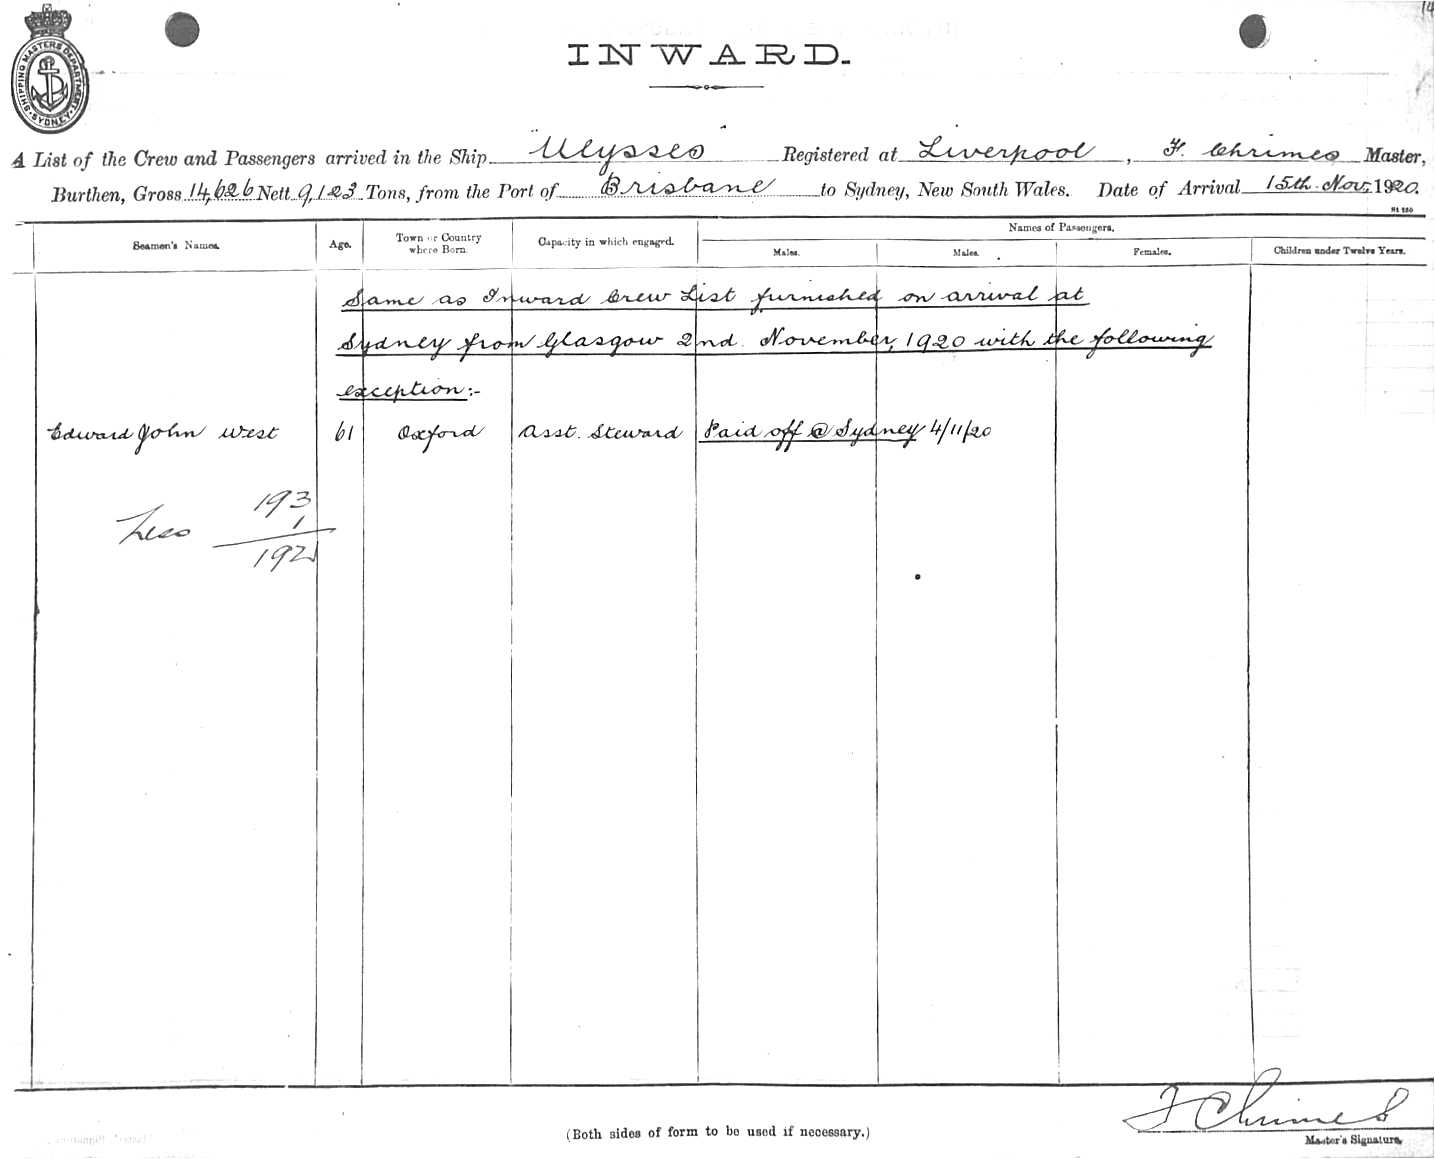 14
SHIPPING MASTERS DEPARTMENT
SYDNEY
INWARD.
A List of the Crew and Passengers arrived in the Ship "Ulysses" Registered at Liverpool, F. Chrimes Master,
Burthen, Gross 14,626 Nett 9,123 Tons, from the Port of Brisbane to Sydney, New South Wales. Date of Arrival 15th Nov, 1920.
Seamen's Names. Age. Town or Country where Born. Capacity in which engaged. Names of Passengers.
Males. Males. Females. Children under Twelve Years.
Same as Inward Crew List furnished on arrival at
Sydney from Glasgow 2nd. November, 1920 with the following
exception:-
Edward John West 61 Oxford Asst. Steward Paid off @ Sydney 4/11/20
193
Less 1
192
F Chrimes
(Both sides of form to be used if necessary.)
Master's Signature.